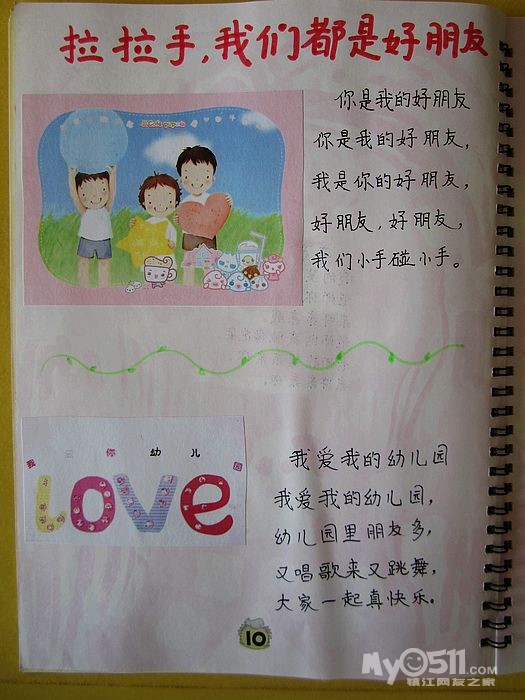 拉拉手,我们都是好朋友
你是我的好朋友
你是我的好朋友,
我是你的好朋友,
好朋友,好朋友,
我们小手碰小手。
我 你幼儿园
LOVe
我爱我的幼儿园
我爱我的幼儿园,
幼儿园里朋友多,
又唱歌来又跳舞,
大家一起真快乐。
10
My0511.com
镇江网友之家